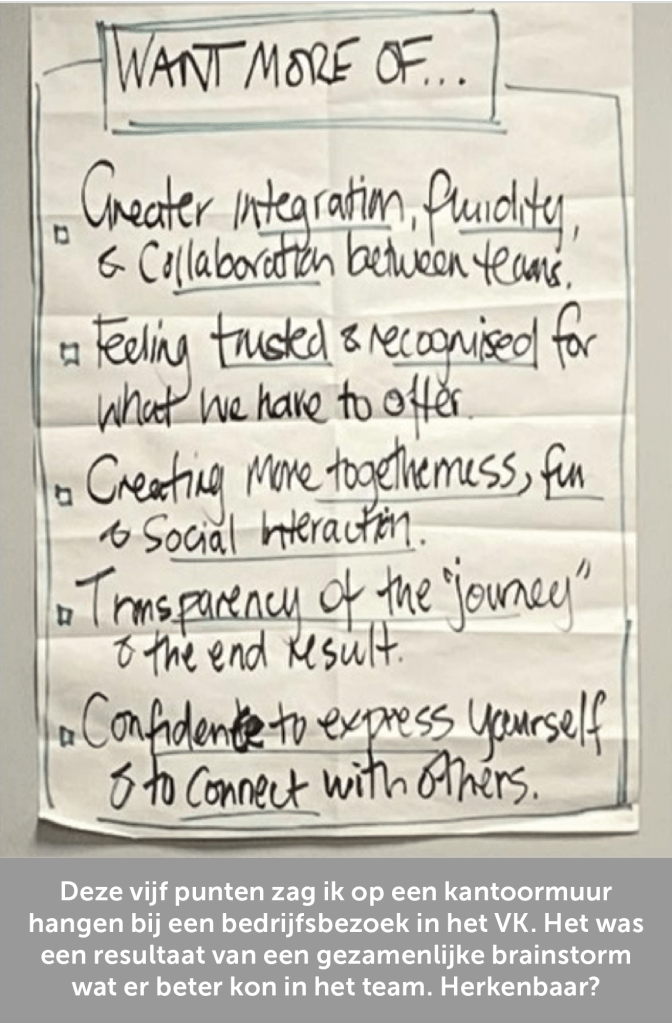 WANT MORE OF...
Greater integration, fluidity,
& Collaboration between teams.
Feeling trusted & recognised for
what we have to offer.
Creating more togetherness, fun
& Social interaction.
Transparency of the "journey"
& the end result.
Confidence to express yourself
& to Connect with others.
Deze vijf punten zag ik op een kantoormuur
hangen bij een bedrijfsbezoek in het VK. Het was
een resultaat van een gezamenlijke brainstorm
wat er beter kon in het team. Herkenbaar?